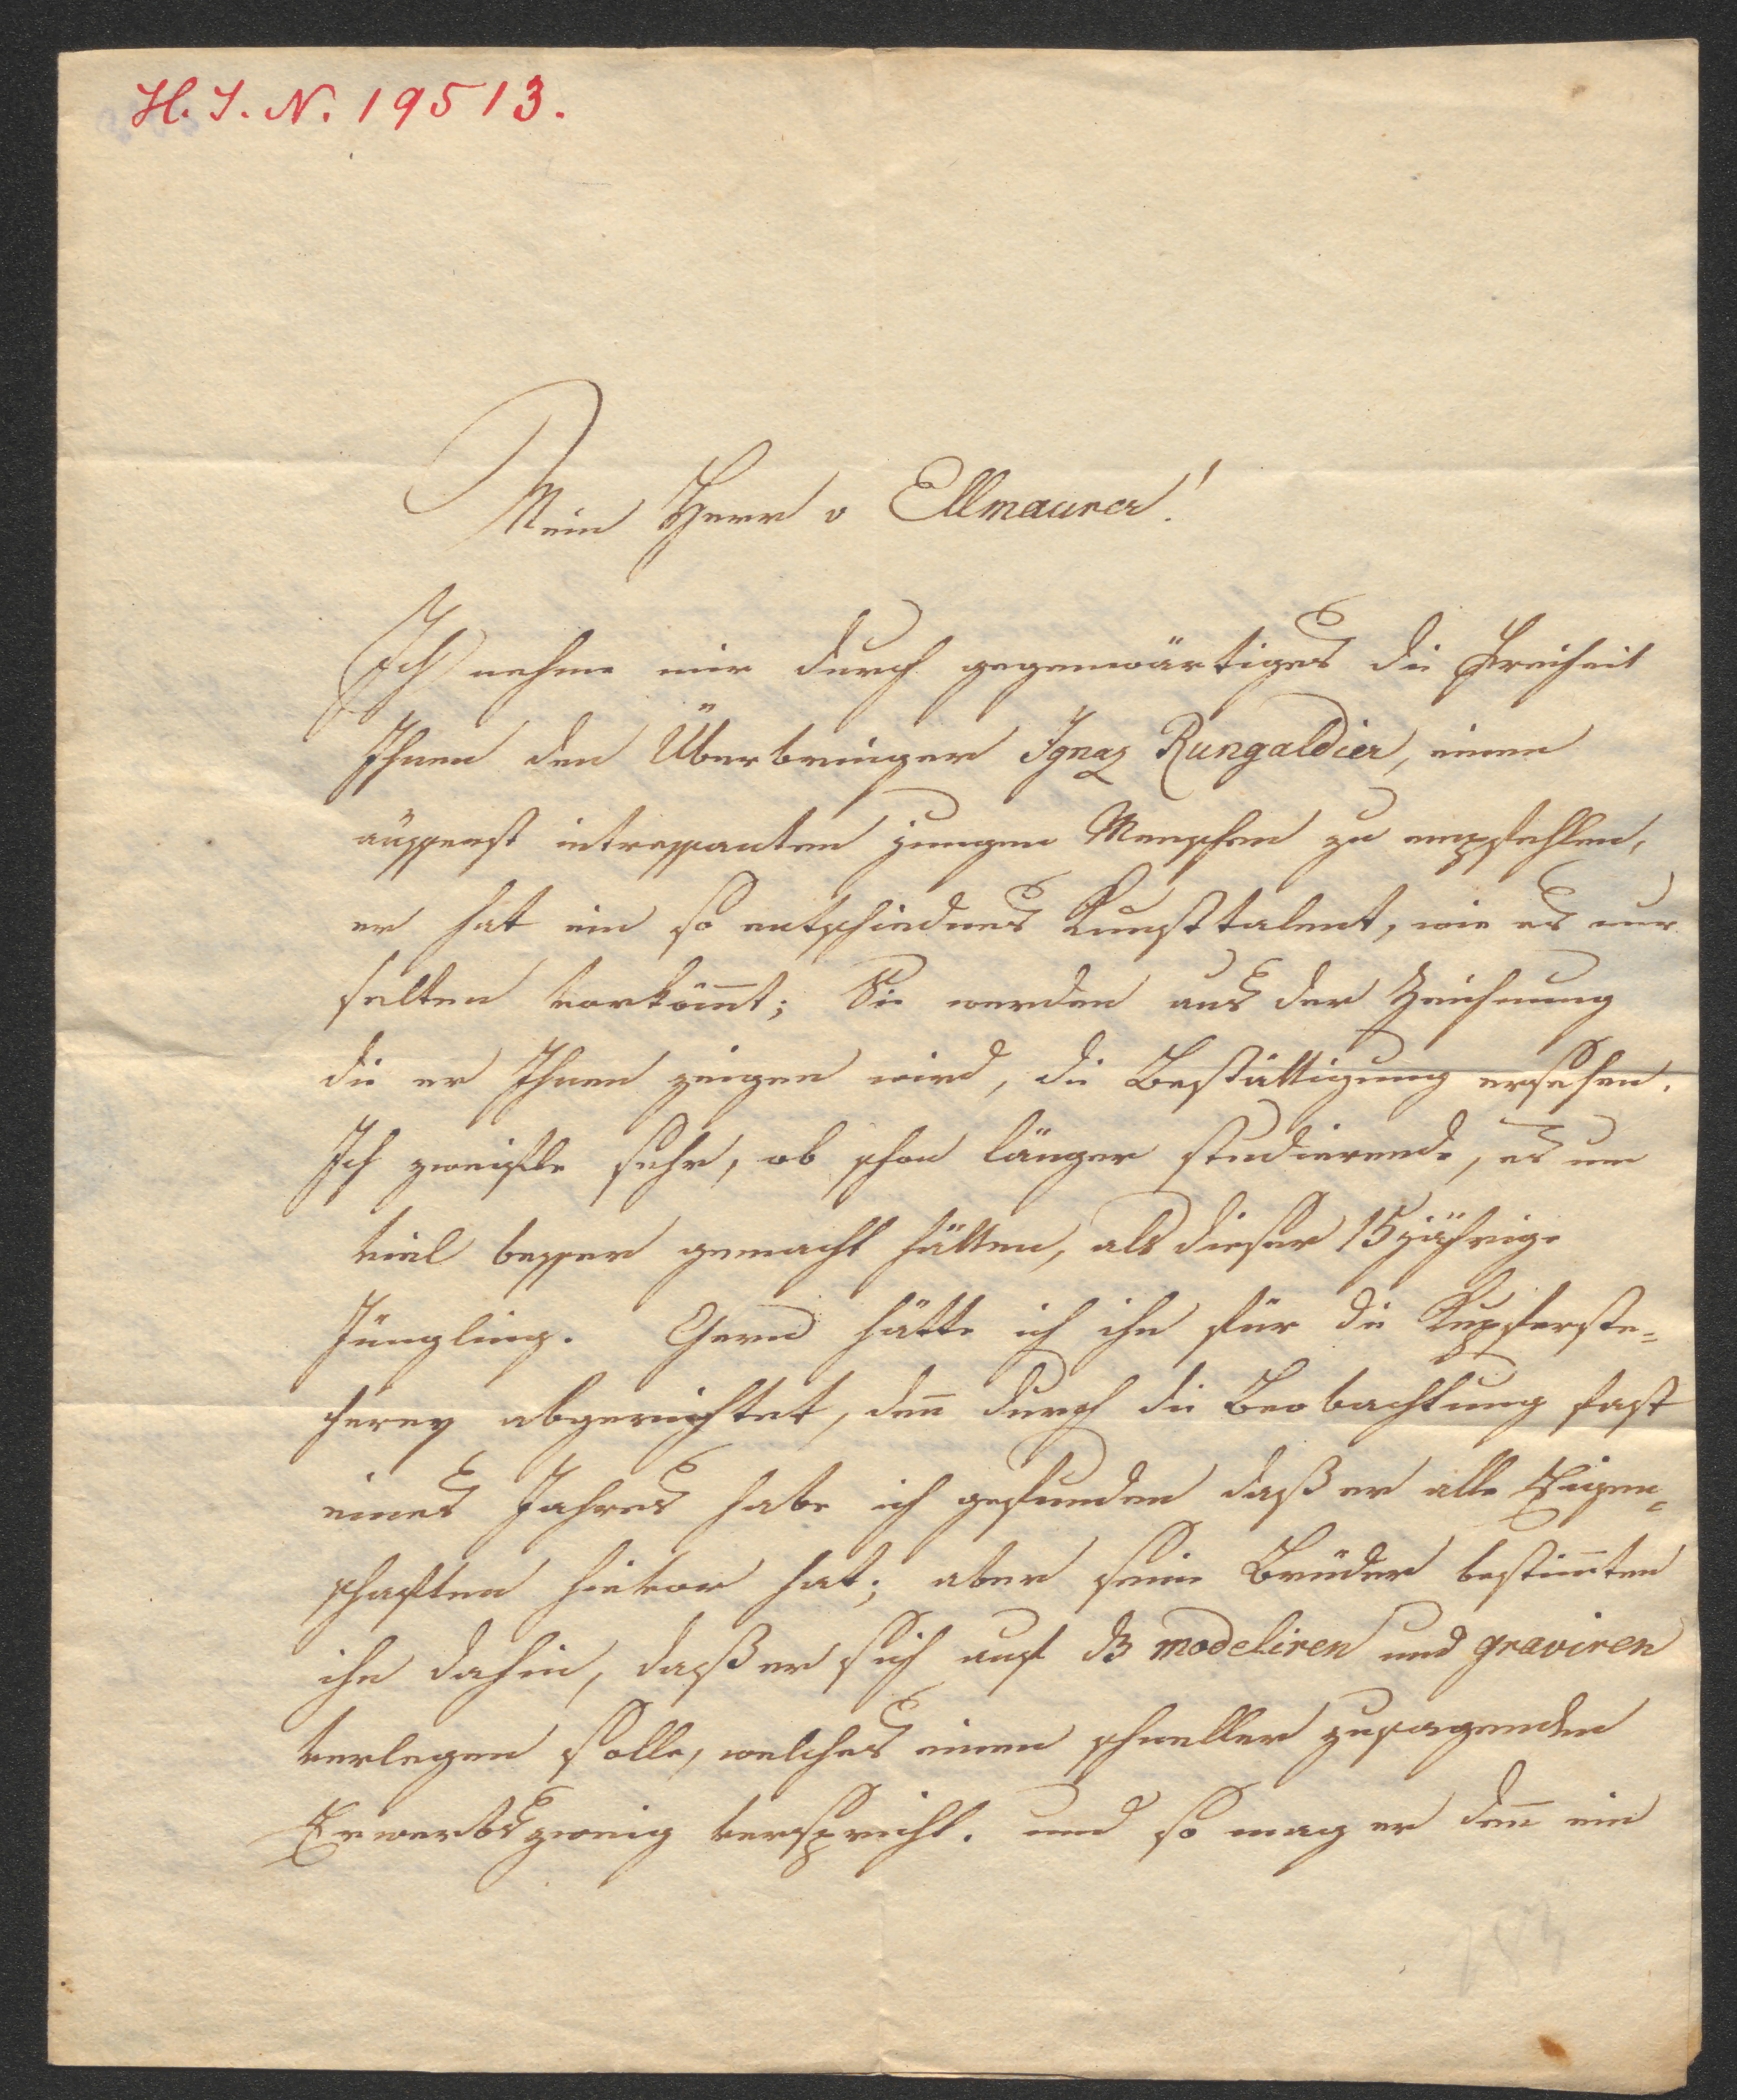 H. I. N. 19513.
Mein Herr v Ellmaurer!
Ich nehme mir durch gegenwärtiges die Freiheit
Ihnen den Überbringer Ignaz Rungaldier, einen
äusserst intressanten jungen Menschen zu empfehlen,
er hat ein so entschiednes Kunsttalent, wie es nur
selten vorkömt; Sie werden aus der Zeichnung
die er Ihnen zeigen wird, die Bestättigung ersehen.
Ich zweifle sehr, ob schon länger studierende, es um
viel besser gemacht hätten, als dieser 15jährige
Jüngling. Gern hätte ich ihn für die Kupferste=
cherey abgerichtet, den durch die Beobachtung fast
eines Jahres habe ich gefunden daß er alle Eigen=
schaften hievor hat; aber seine Brüder bestimten
ihn dahin, daß er sich auf dß modeliren und graviren
verlegen solle, welches einen schneller zusagenden
Erwerbszweig verspricht. und so mag er den ein